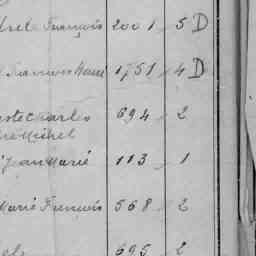 François 2001 5 D
François Marie 1751 4 D
Charles 694 2
Michel
Jean Marie 113 1
Marie François 568 2
695 2